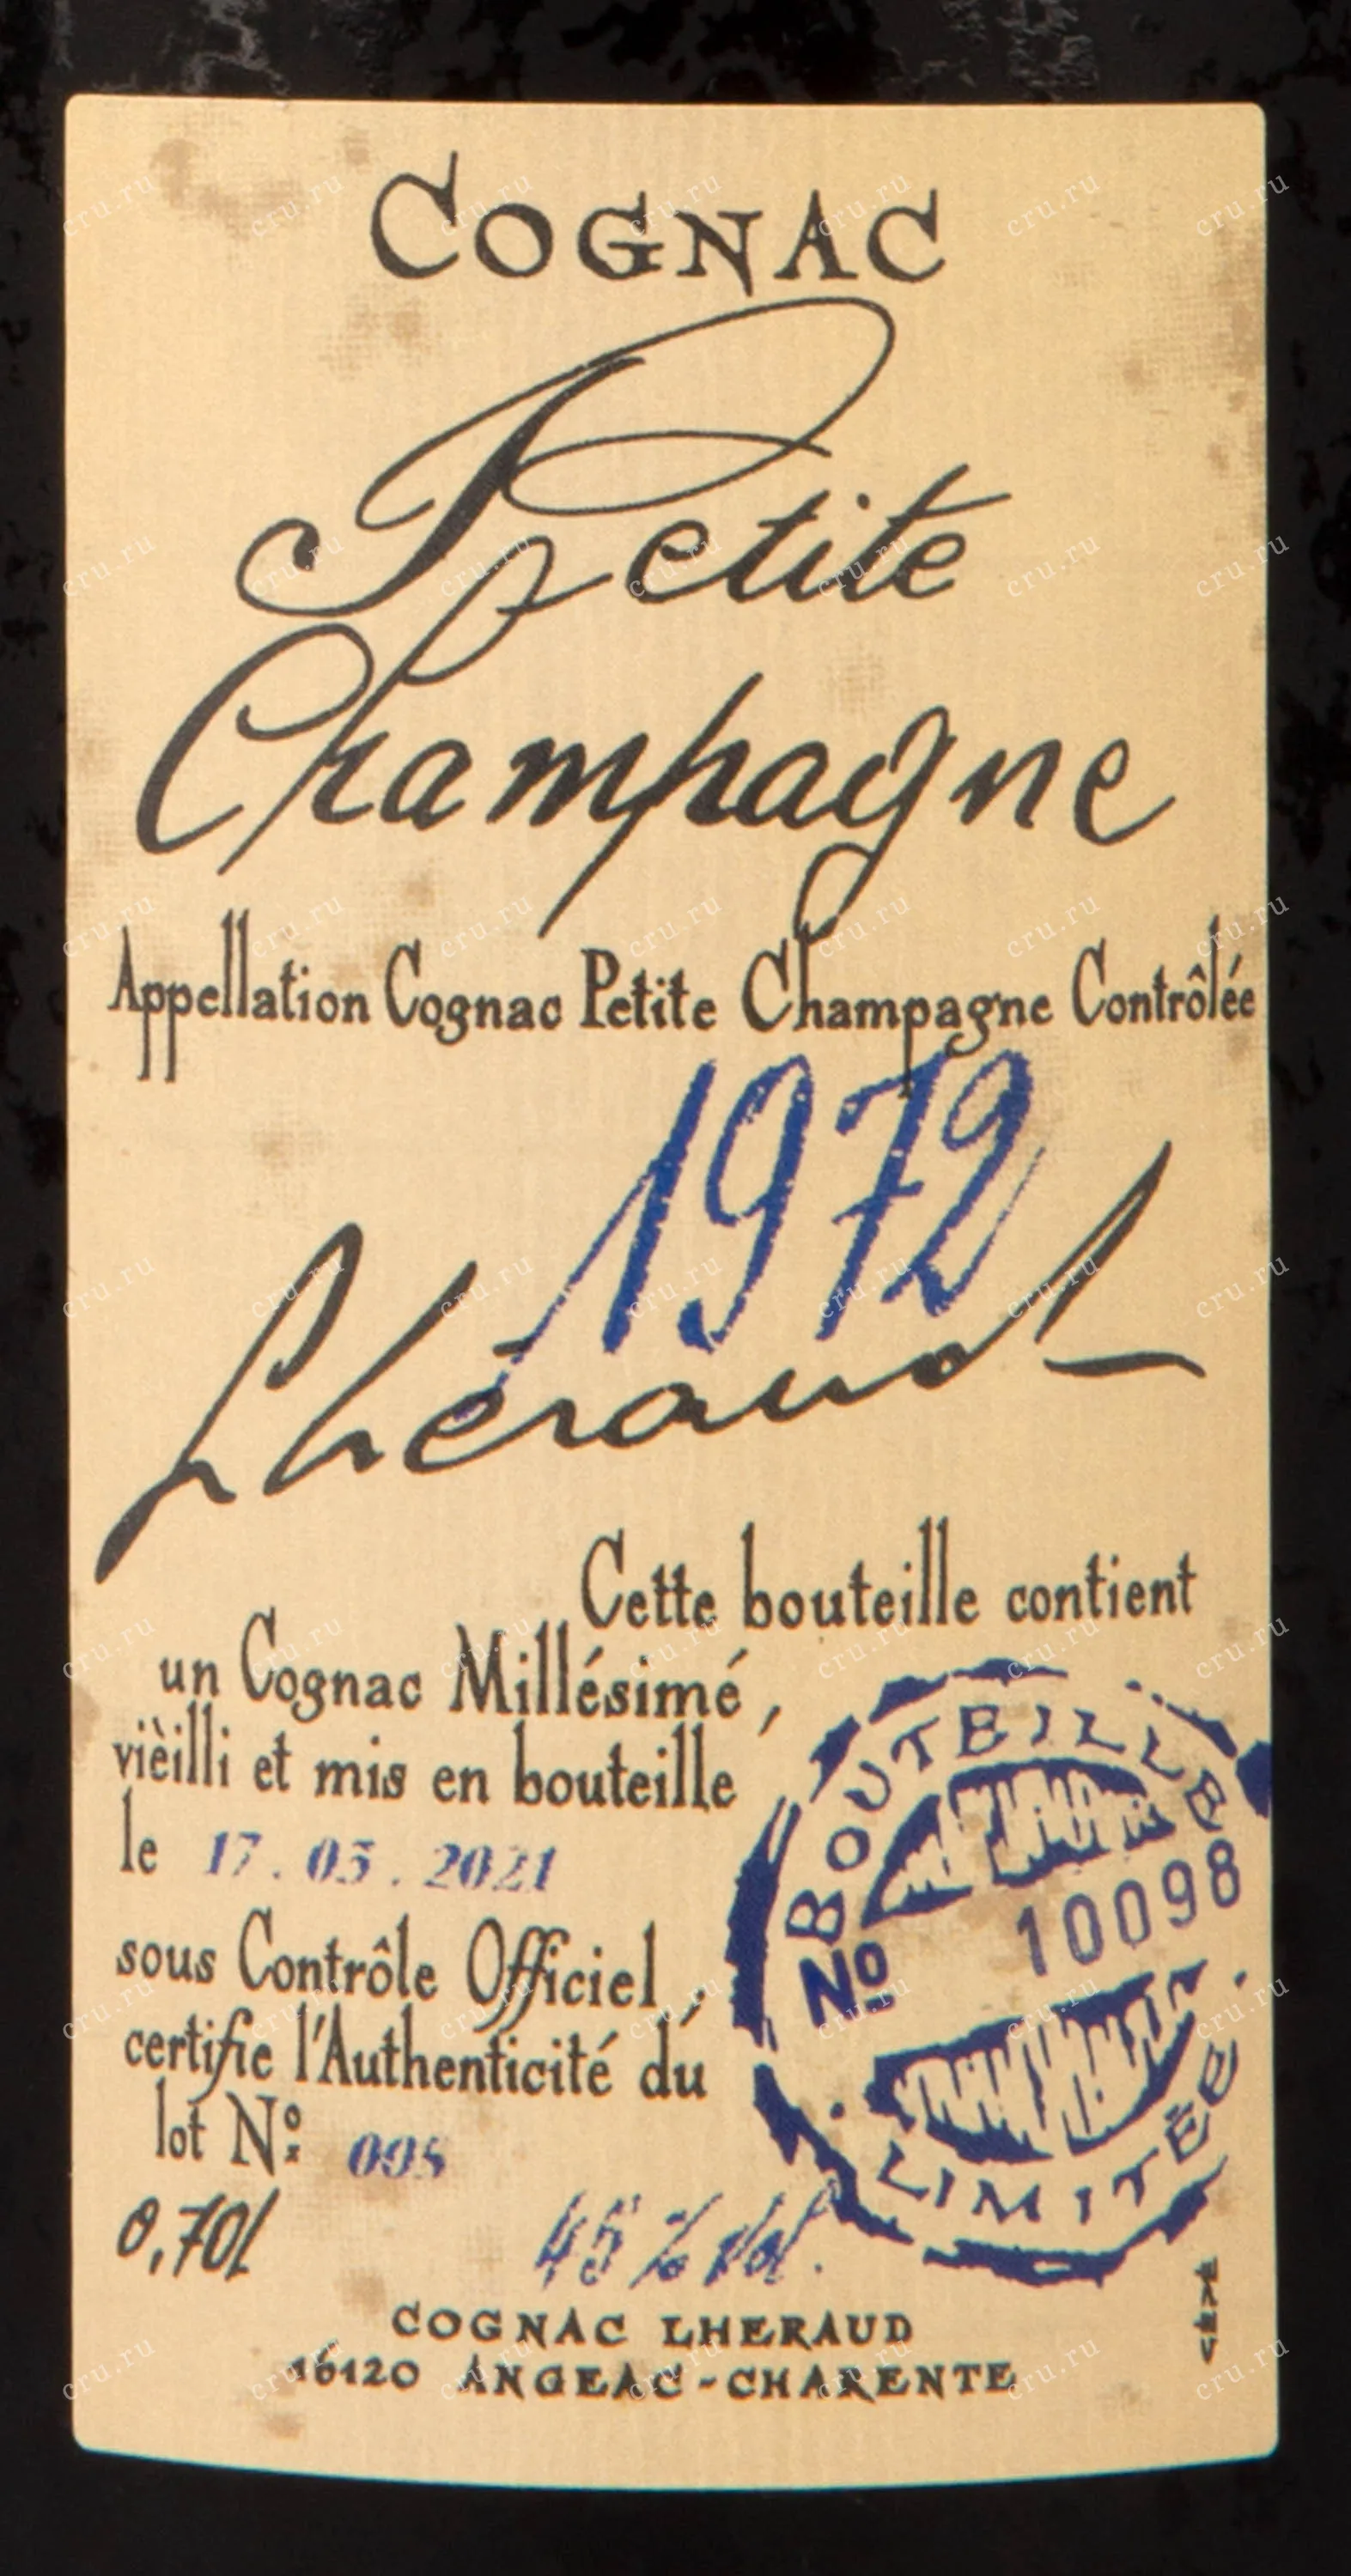 COGNAC
Petite
Champagne
Appellation Cognac Petite Champagne Contrôlée
1972
Lhéraud
Cette bouteille contient
un Cognac Millésimé,
vièilli et mis en bouteille
le 17.05.2021
sous Contrôle Officiel,
certifie l'Authenticité du
lot Nº:
BOUTEILLE
Nº 10098
LIMITÉE
0,70l 45% Vol.
COGNAC LHERAUD
16120 ANGEAC-CHARENTE
cru.ru